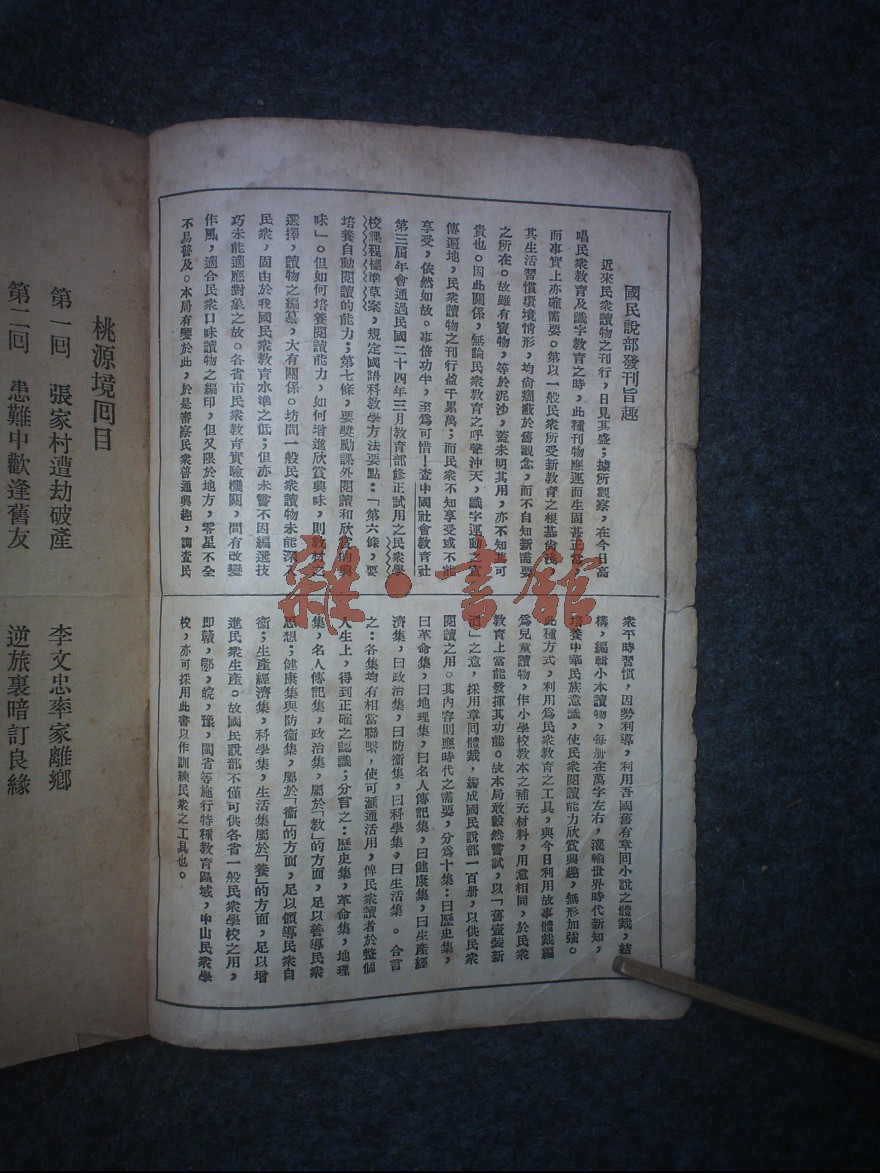 國民說部發刊旨趣
近來民衆讀物之刊行，日見其盛；據所觀察，在今日高
唱民衆教育及識字教育之時，此種刊物應運而生固甚正當，
而事實上亦確需要。第以一般民衆所受新教育之根基尚淺，
其生活習慣環境情形，均尚錮蔽於舊觀念，而不自知新需要
之所在。故雖有寶物，等於泥沙，蓋未明其用，亦不知其可
貴也。因此關係，無論民衆教育之呼聲沖天，識字運動之宣
傳遍地，民衆讀物之刊行盈千累萬；而民衆不知享受或不能
享受，依然如故。事倍功半，至為可惜！查中國社會教育社
第三屆年會通過民國二十四年三月教育部修正試用之民衆學
校課程標準草案，規定國語科教學方法要點：「第六條，要
培養自動閱讀的能力；第七條，要獎勵課外閱讀和欣賞的興
味」。但如何培養閱讀能力，如何增進欣賞興味，則教材之
選擇，讀物之編纂，大有關係。坊間一般民衆讀物未能深入
民衆，固由於我國民衆教育水準之低；但亦未嘗不因編選技
巧未能適應對象之故。各省市民衆教育實驗機關，間有改變
作風，適合民衆口味讀物之編印，但又限於地方，零星不全
不易普及。本局有鑒於此，於是審察民衆普通興趣，調查民
衆平時習慣，因勢利導，利用吾國舊有章回小說之體裁，結
構，編輯小本讀物，每册在萬字左右，灌輸世界時代新知，
培養中華民族意識，使民衆閱讀能力欣賞興趣，無形加強。
此種方式，利用為民衆教育之工具，與今日利用故事體裁編
為兒童讀物，作小學校教本之補充材料，用意相同，於民衆
教育上當能發揮其功能。故本局敢毅然嘗試，以「舊壺裝新
酒」之意，採用章回體裁，編成國民說部一百册，以供民衆
閱讀之用。其內容則應時代之需要，分為十集：曰歷史集，
曰革命集，曰地理集，曰名人傳記集，曰健康集，曰生產經
濟集，曰政治集，曰防衞集，曰科學集，曰生活集。合言
之：各集均有相當聯繫，使可滙通活用，俾民衆讀者於整個
人生上，得到正確之認識；分言之：歷史集，革命集，地理
集，名人傳記集，政治集，屬於「教」的方面，足以善導民衆
思想；健康集與防衞集，屬於「衞」的方面，足以領導民衆自
衞；生產經濟集，科學集，生活集屬於「養」的方面，足以增
進民衆生產。故國民說部不僅可供各省一般民衆學校之用，
即贛，鄂，皖，豫，閩省等施行特種教育區域，中山民衆學
校，亦可採用此書以作訓練民衆之工具也。
桃源境回目
第一回　張家村遭劫破產　李文忠率家離鄉
第二回　患難中歡逢舊友　逆旅裏暗訂良緣
雜·書館